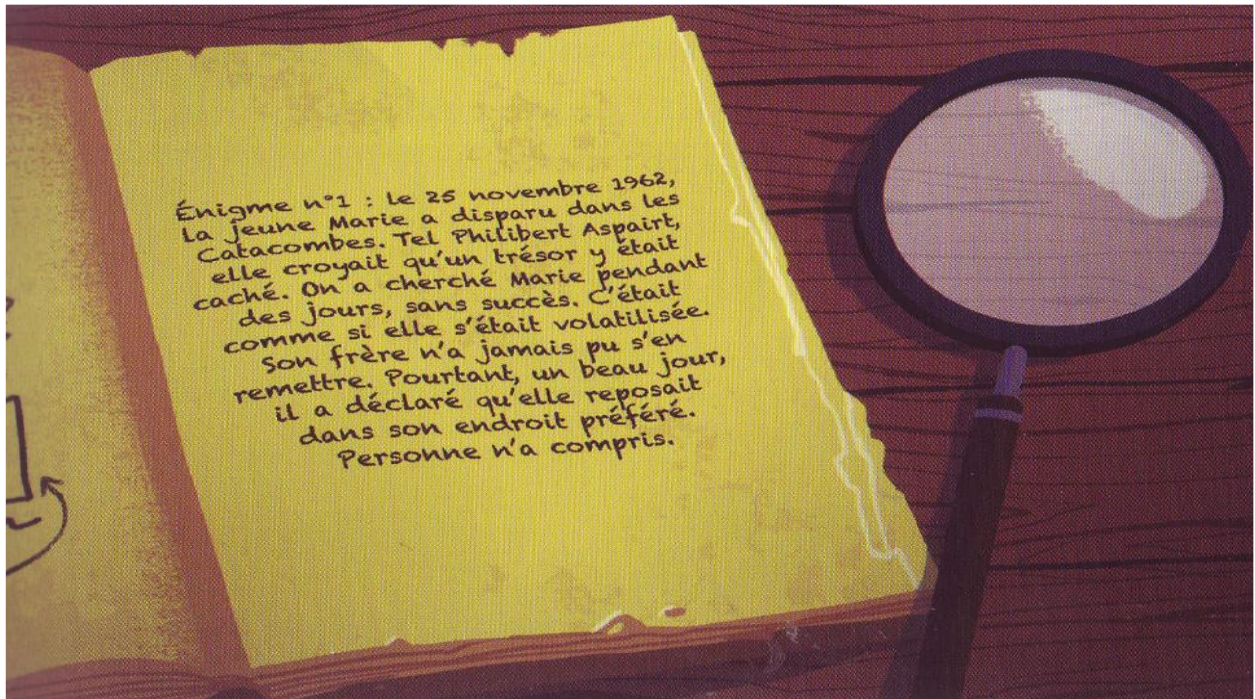 Énigme n°1 : Le 25 novembre 1962,
la jeune Marie a disparu dans les
Catacombes. Tel Philibert Aspairt,
elle croyait qu'un trésor y était
caché. On a cherché Marie pendant
des jours, sans succès. C'était
comme si elle s'était volatilisée.
Son frère n'a jamais pu s'en
remettre. Pourtant, un beau jour,
il a déclaré qu'elle reposait
dans son endroit préféré.
Personne n'a compris.